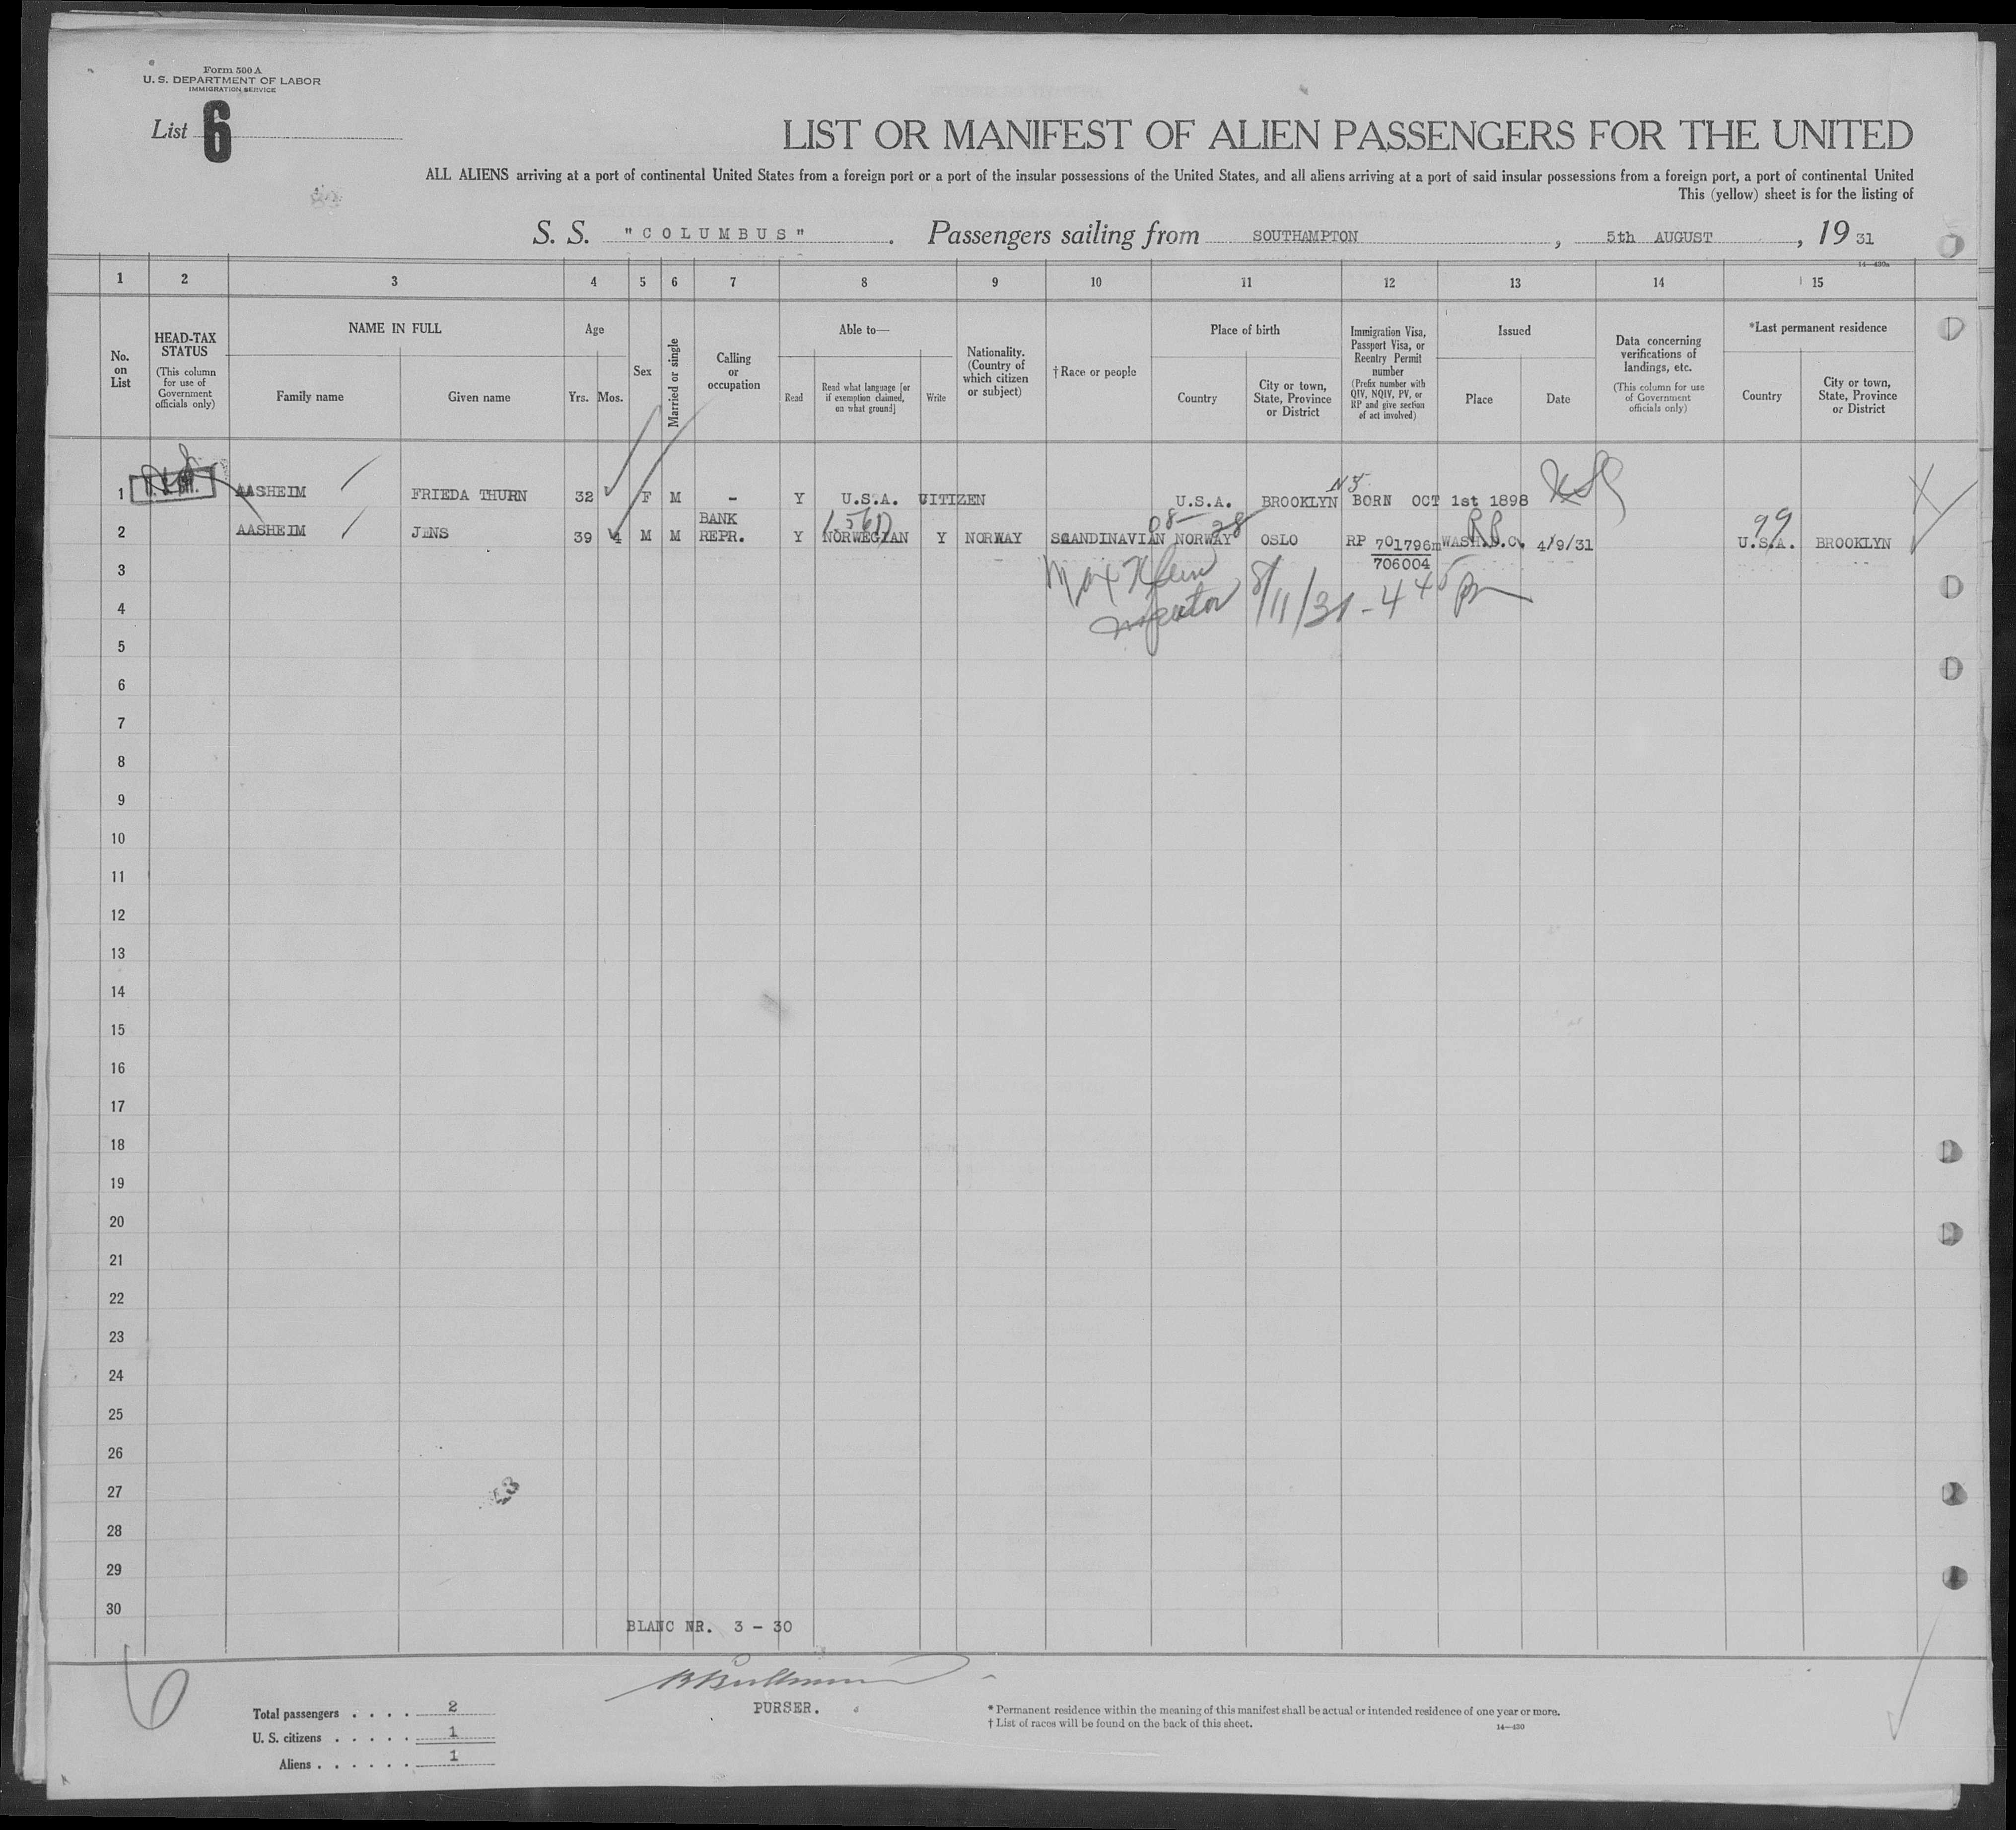 Form 500 A
U. S. DEPARTMENT OF LABOR
IMMIGRATION SERVICE
List 6
LIST OR MANIFEST OF ALIEN PASSENGERS FOR THE UNITED
ALL ALIENS arriving at a port of continental United States from a foreign port or a port of the insular possessions of the United States, and all aliens arriving at a port of said insular possessions from a foreign port, a port of continental United
This (yellow) sheet is for the listing of
S. S. "COLUMBUS". Passengers sailing from SOUTHAMPTON, 5th AUGUST, 19 31
14—430a
1 2 3 4 5 6 7 8 9 10 11 12 13 14 15
No. on List
HEAD-TAX STATUS
(This column for use of Government officials only)
NAME IN FULL
Family name
Given name
Age
Yrs. Mos.
Sex
Married or single
Calling or occupation
Able to—
Read
Read what language [or if exemption claimed, on what ground]
Write
Nationality. (Country of which citizen or subject)
† Race or people
Place of birth
Country
City or town, State, Province or District
Immigration Visa, Passport Visa, or Reentry Permit number
(Prefix number with QIV, NQIV, PV, or RP and give section of act involved)
Issued
Place
Date
Data concerning verifications of landings, etc.
(This column for use of Government officials only)
*Last permanent residence
Country
City or town, State, Province or District
1 AASHEIM FRIEDA THURN 32 F M - Y U.S.A. CITIZEN U.S.A. BROOKLYN BORN OCT 1st 1898
2 AASHEIM JENS 39 4 M M BANK REPR. Y NORWEGIAN Y NORWAY SCANDINAVIAN NORWAY OSLO RP 701796m WASH.D.C. 4/9/31 U.S.A. BROOKLYN
99
706004
3
Max Klein
Inspector 8/11/31 - 4 45 pm
4
5
6
7
8
9
10
11
12
13
14
15
16
17
18
19
20
21
22
23
24
25
26
27
28
29
30
BLANC NR. 3 - 30
6
PURSER.
Total passengers . . . . 2
U. S. citizens . . . . . 1
Aliens . . . . . . 1
* Permanent residence within the meaning of this manifest shall be actual or intended residence of one year or more.
† List of races will be found on the back of this sheet.
14—430